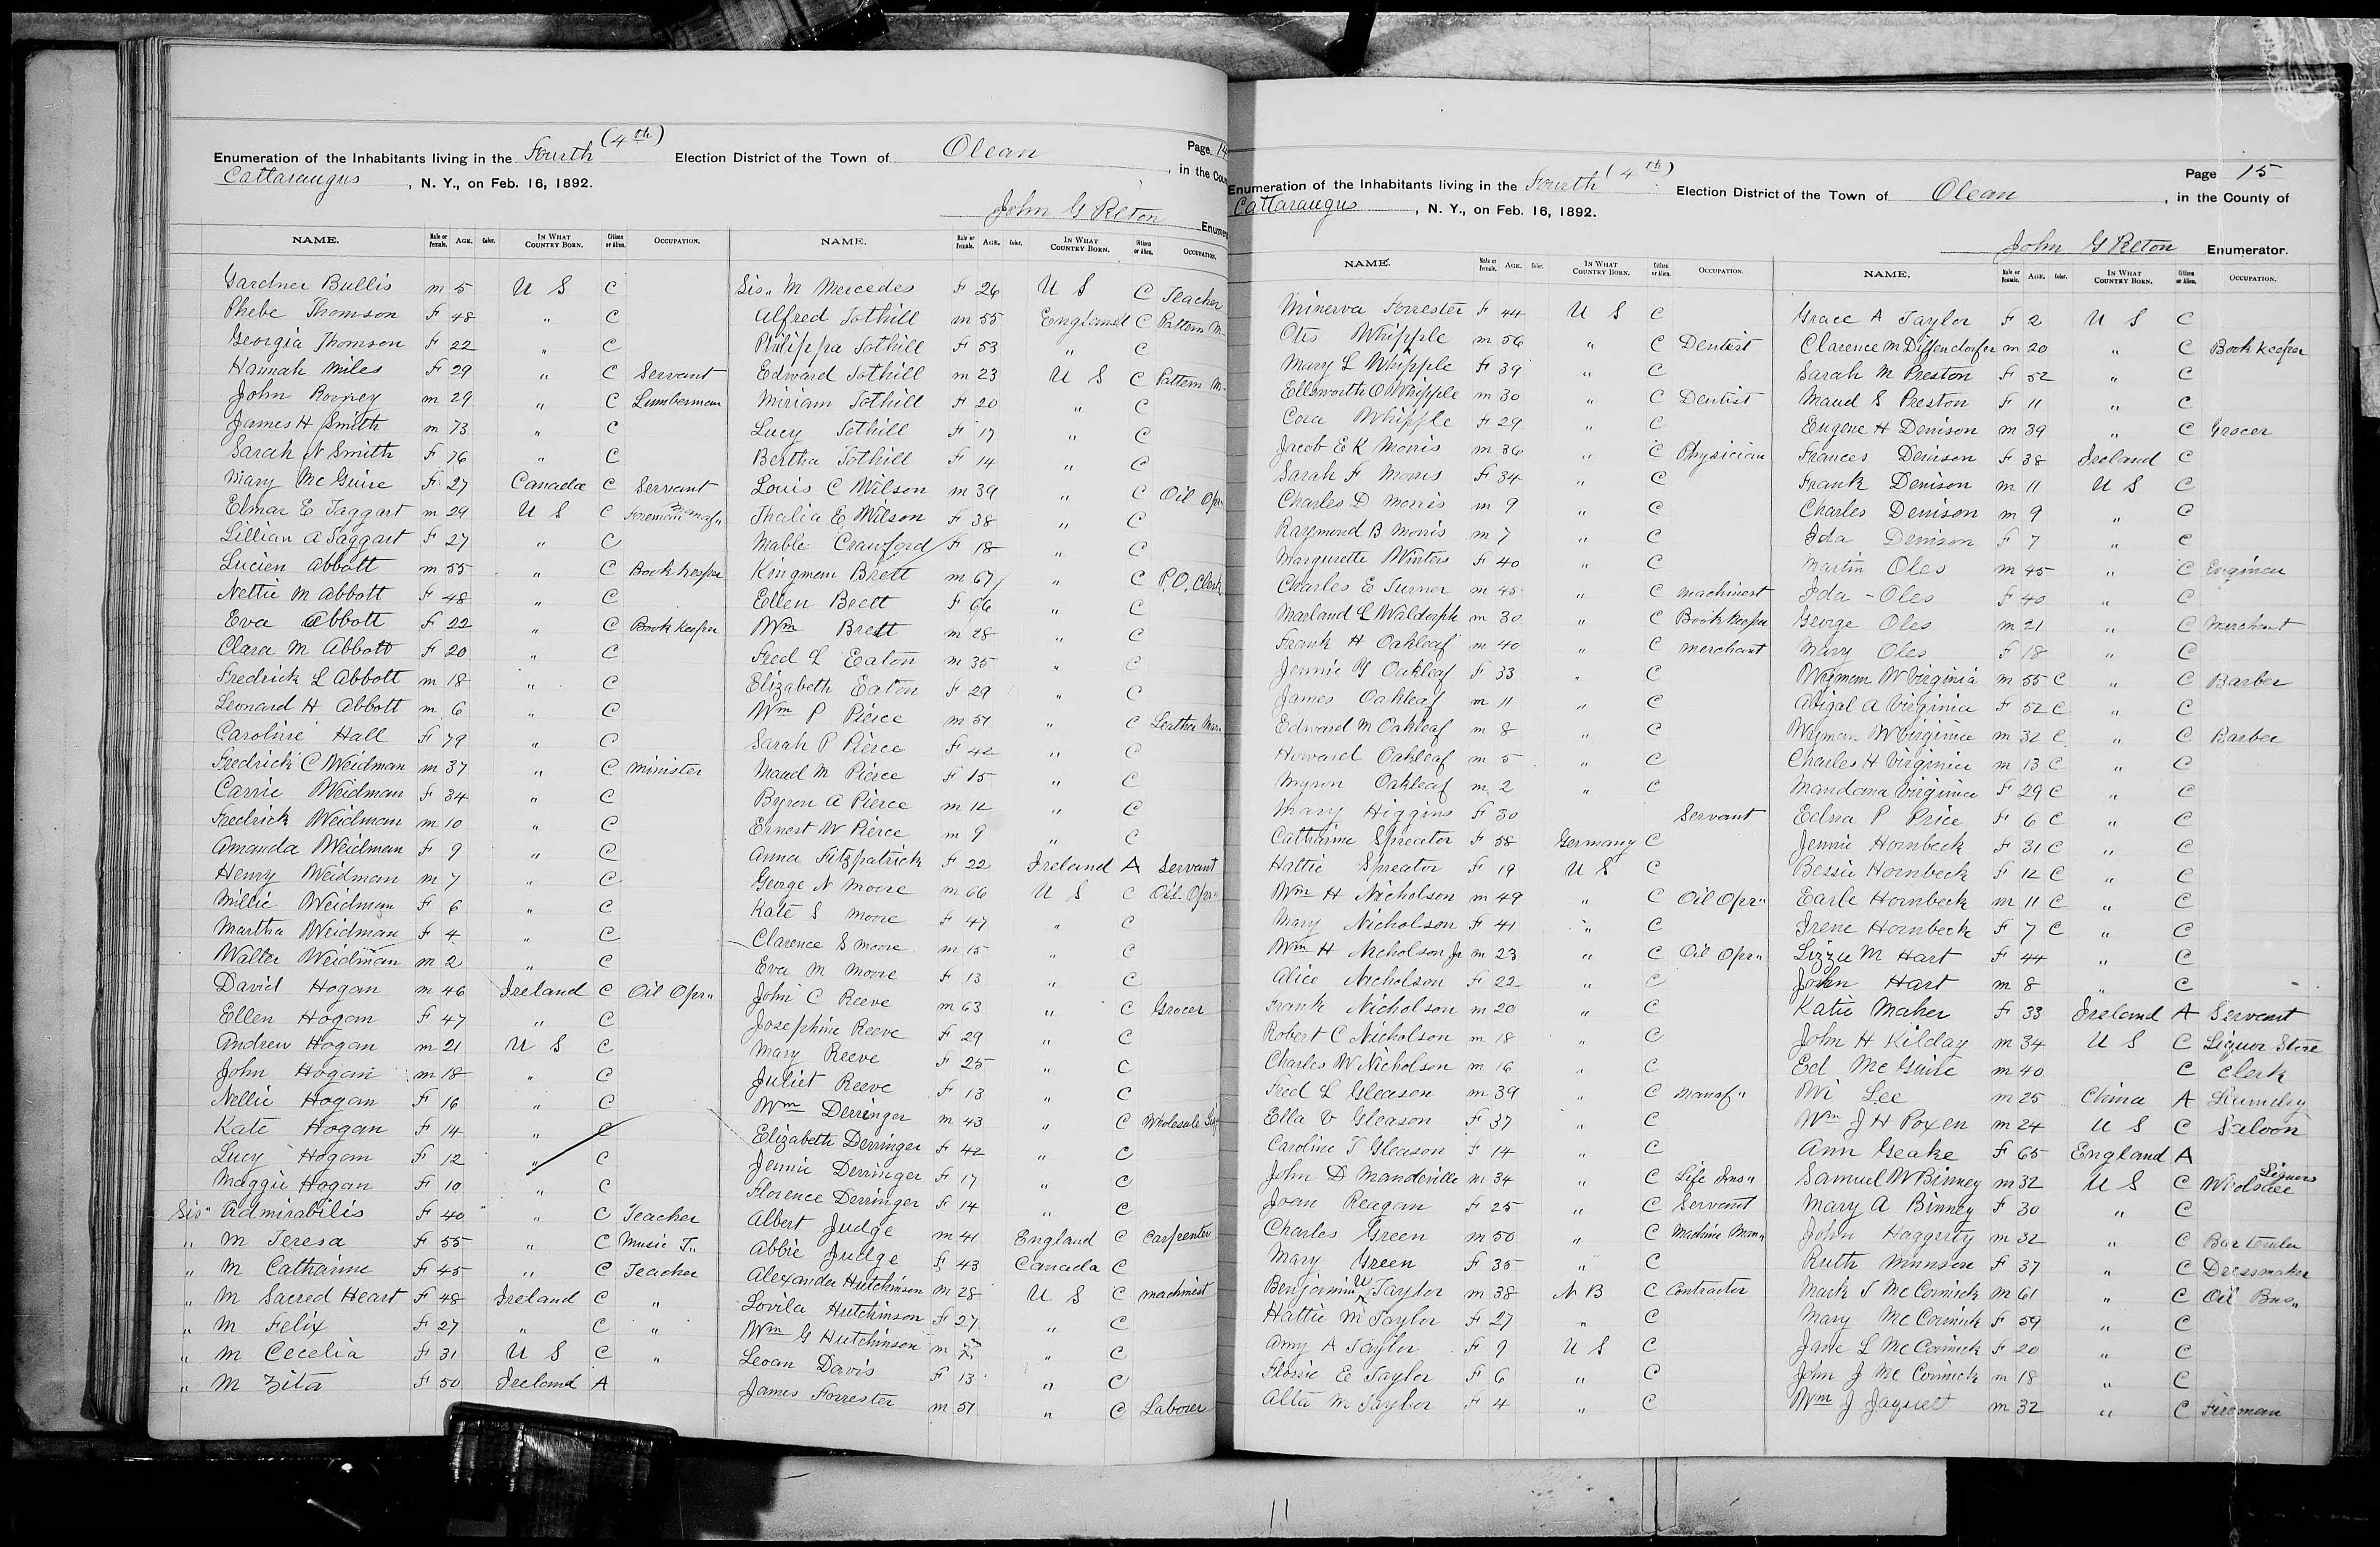 Page 14
Enumeration of the Inhabitants living in the Fourth (4th) Election District of the Town of Olean, in the Coun
Cattaraugus, N. Y., on Feb. 16, 1892.
John G Pelton Enumera
NAME. Male or Female. AGE. Color. IN WHAT COUNTRY BORN. Citizen or Alien. OCCUPATION.
Gardner Bullis m 5 U S C
Phebe Thomson F 48 " C
Georgia Thomson F 22 " C
Hannah Miles F 29 " C Servant
John m 29 " C Lumberman
James H Smith m 73 " C
Sarah N Smith F 76 " C
Mary McGuire F 27 Canada C Servant
Elmar E Taggart m 29 U S C Foreman Manaf"
Lillian A Taggart F 27 " C
Lucien Abbott m 55 " C Book Keeper
Nettie M Abbott F 48 " C
Eva Abbott F 22 " C Book Keeper
Clara M Abbott F 20 " C
Fredrick L Abbott m 18 " C
Leonard H Abbott m 6 " C
Caroline Hall F 79 " C
Fredrick C Weidman m 37 " C Minister
Carrie Weidman F 34 " C
Fredrick Weidman m 10 " C
Amanda Weidman F 9 " C
Henry Weidman m 7 " C
Millie Weidman F 6 " C
Martha Weidman F 4 " C
Walter Weidman m 2 " C
David Hogan m 46 Ireland C Oil Opr"
Ellen Hogan F 47 " C
Andrew Hogan m 21 U S C
John Hogan m 18 " C
Nellie Hogan F 16 " C
Kate Hogan F 14 " C
Lucy Hogan F 12 " C
Maggie Hogan F 10 " C
Sis" Admirabilis F 40 " C Teacher
" M Teresa F 55 " C Music T"
" M Catharine F 45 " C Teacher
" M Sacred Heart F 48 Ireland C "
" M Felix F 27 " C "
" M Cecelia F 31 U S C "
" M Zita F 50 Ireland A
NAME. Male or Female. AGE. Color. IN WHAT COUNTRY BORN. Citizen or Alien. OCCUPATION.
Sis" M Mercedes F 26 U S C Teacher
Alfred Tothill m 55 England C Pattern M
Philippa Tothill F 53 " C
Edward Tothill m 23 U S C Pattern M
Miriam Tothill F 20 " C
Lucy Tothill F 17 " C
Bertha Tothill F 14 " C
Louis C Wilson m 39 " C Oil Opr
Thalia E Wilson F 38 " C
Mable Crawford F 18 " C
Kingman Brett m 67 " C P.O. Clerk
Ellen Brett F 66 " C
Wm Brett m 28 " C
Fred L Eaton m 35 " C
Elizabeth Eaton F 29 " C
Wm P Pierce m 51 " C Leather Man
Sarah P Pierce F 42 " C
Maud M Pierce F 15 " C
Byron A Pierce m 12 " C
Ernest W Pierce m 9 " C
Anna Fitzpatrick F 22 Ireland A Servant
George N Moore m 66 U S C Oil Opr"
Kate S Moore F 47 " C
Clarence S Moore m 15 " C
Eva M Moore F 13 " C
John C Reeve m 63 " C Grocer
Josephine Reeve F 29 " C
Mary Reeve F 25 " C
Juliet Reeve F 13 " C
Wm Derringer m 43 " C Wholesale
Elizabeth Derringer F 42 " C
Jennie Derringer F 17 " C
Florence Derringer F 14 " C
Albert Judge m 41 England C Carpenter
Abbie Judge F 43 Canada C
Alexander Hutchinson m 28 U S C Machinest
Lovila Hutchinson F 27 " C
Wm G Hutchinson m " C
Leoan Davis F 13 " C
James Forrester m 51 " C Laborer
Page 15
Enumeration of the Inhabitants living in the Fourth (4th) Election District of the Town of Olean, in the County of
Cattaraugus, N. Y., on Feb. 16, 1892.
John G Pelton Enumerator.
NAME. Male or Female. AGE. Color. IN WHAT COUNTRY BORN. Citizen or Alien. OCCUPATION.
Minerva Forrester F 44 U S C
Otis Whipple m 56 " C Dentist
Mary L Whipple F 39 " C
Ellsworth O Whipple m 30 " C Dentist
Cora Whipple F 29 " C
Jacob E K Morris m 36 " C Physician
Sarah F Morris F 34 " C
Charles D Morris m 9 " C
Raymond B Morris m 7 " C
Margurette Winters F 40 " C
Charles E Turner m 45 " C Machinest
Marland L Waldorph m 30 " C Book Keeper
Frank H Oakleaf m 40 " C Merchant
Jennie Y Oakleaf F 33 " C
James Oakleaf m 11 " C
Edward M Oakleaf m 8 " C
Howard Oakleaf m 5 " C
Myron Oakleaf m 2 " C
Mary Higgins F 30 Servant
Catharine Spreator F 58 Germany C
Hattie Spreator F 19 U S C
Wm H Nicholson m 49 " C Oil Opr"
Mary Nicholson F 41 " C
Wm H Nicholson Jr m 23 " C Oil Opr"
Alice Nicholson F 22 " C
Frank Nicholson m 20 " C
Robert C Nicholson m 18 " C
Charles W Nicholson m 16 " C
Fred L Gleason m 39 " C Manaf"
Ella V Gleason F 37 " C
Caroline T Gleason F 14 " C
John D Mandeville m 34 " C Life Ins"
Joan Reagan F 25 " C Servant
Charles Green m 50 " C Machine Man"
Mary Green F 35 " C
Benjamin U Taylor m 38 N B C Contractor
Hattie M Taylor F 27 " C
Amy A Taylor F 9 U S C
Flossie E Taylor F 6 " C
Alta M Taylor F 4 " C
NAME. Male or Female. AGE. Color. IN WHAT COUNTRY BORN. Citizen or Alien. OCCUPATION.
Grace A Taylor F 2 U S C
Clarence M Diffendorfer m 20 " C Book Keeper
Sarah M Preston F 52 " C
Maud S Preston F 11 " C
Eugene H Denison m 39 " C Grocer
Frances Denison F 38 Ireland C
Frank Denison m 11 U S C
Charles Denison m 9 " C
Ida Denison F 7 " C
Martin Oles m 45 " C Engineer
Ida - Oles F 40 " C
George Oles m 21 " C Merchant
Mary Oles F 18 " C
Wyman W Virginia m 55 C " C Barber
Abigal A Virginia F 52 C " C
Wyman W Virginia m 32 C " C Barber
Charles H Virginia m 13 C " C
Mandana Virginia F 29 C " C
Edna P Price F 6 C " C
Jennie Hornbeck F 31 C " C
Bessie Hornbeck F 12 C " C
Earle Hornbeck m 11 C " C
Irene Hornbeck F 7 C " C
Lizzie M Hart F 44 " C
John Hart m 8 " C
Katie Maher F 33 Ireland A Servant
John H Kilday m 34 U S C Liquor Store
Ed McGuire m 40 C Clerk
Wi Lee m 25 China A Laundry
Wm J H Poxen m 24 U S C Saloon
Ann Geake F 65 England A
Samuel W Binney m 32 U S C Wholsale Liquors
Mary A Binney F 30 " C
John Haggerty m 32 " C Bar tender
Ruth Munson F 37 " C Dressmaker
Mark S McCormick m 61 " C Oil Bus"
Mary McCormick F 59 " C
Jane L McCormick F 20 " C
John J McCormick m 18 " C
Wm J Jaquett m 32 " C Fireman
11